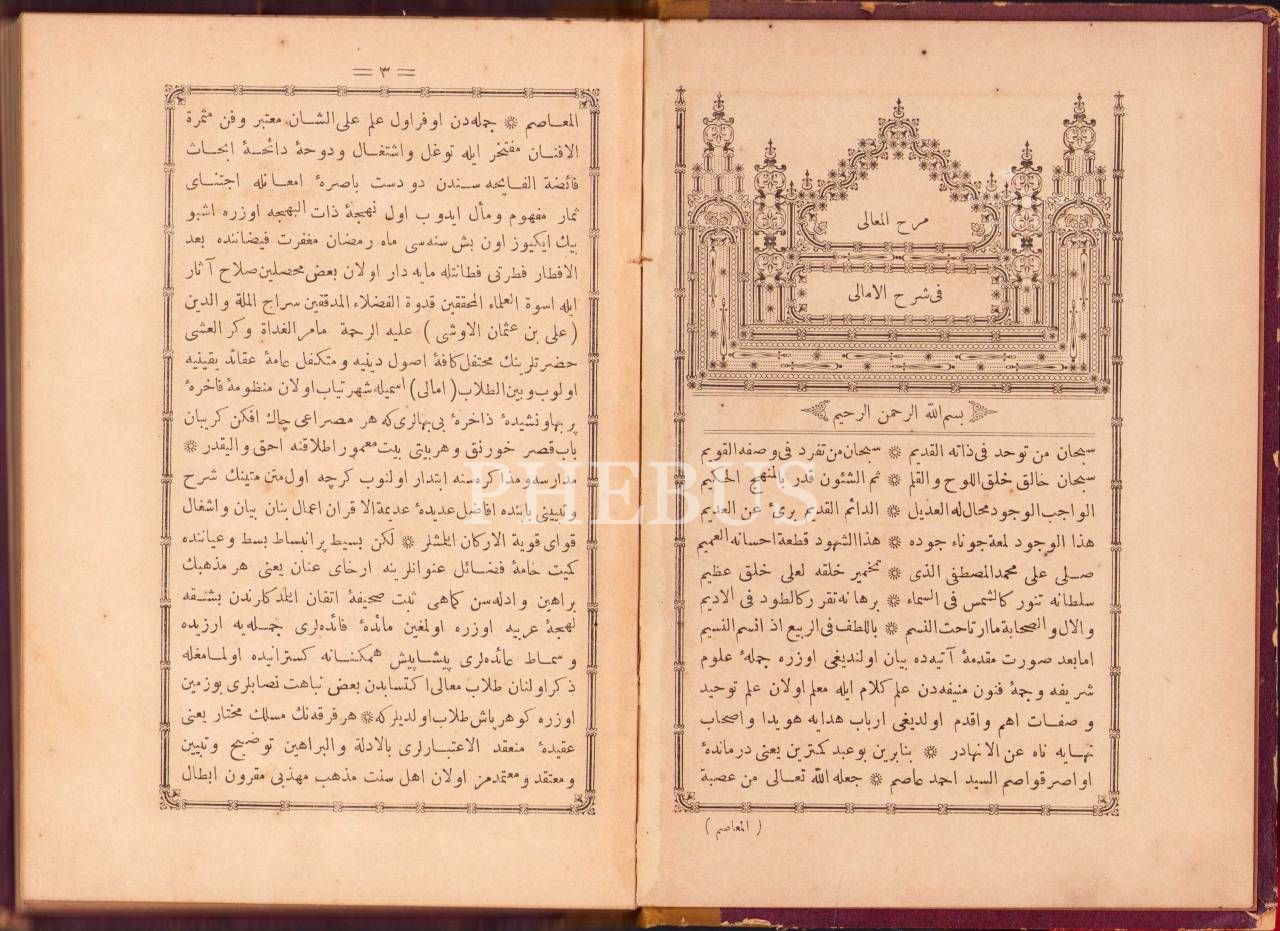 مرح المعالى
فى شرح الامالى
بسم الله الرحمن الرحيم
سبحان من توحد فى ذاته القديم ❊ سبحان من تفرد فى وصفه القويم
سبحان خالق خلق اللوح والقلم ❊ ثم الشئون قدر بالمنهج الحكيم
الواجب الوجود محال له العديل ❊ الدائم القديم برئ عن العديم
هذا الوجود لمعة جوناء جوده ❊ هذا الشهود قطعة احسانه العميم
صلى على محمد المصطفى الذى ❊ تخمير خلقه لعلى خلق عظيم
سلطانه تنور كالشمس فى السماء ❊ برهانه تقرر كالطود فى الاديم
والال والصحابة ما ارتاحت النسم ❊ باللطف فى الربيع اذ انسم النسيم
اما بعد صورت مقدمۀ آتيه ده بيان اولنديغى اوزره جملۀ علوم
شريفه وجمۀ فنون منيفه دن علم كلام ايله معلم اولان علم توحيد
و صفات اهم واقدم اولديغى ارباب هدايه هويدا واصحاب
نهايه ناه عن الانهادر ❊ بنابرين بوعبد كمترين يعنى درماندۀ
اواصر قواصم السيد احمد عاصم ❊ جعله الله تعالى من عصبة
( المعاصم )
= ٣ =
المعاصم ❊ جمله دن اوفراول علم على الشان معتبر وفن مثمرة
الافنان مفتخر ايله توغل واشتغال ودوحۀ دائحۀ ابحاث
فائضة الفايحه سندن دودست باصرۀ امعانله اجتناى
ثمار مفهوم ومأل ايدوب اول نهجۀ ذات البهجه اوزره اشبو
بيك ايكيوز اون بش سنه سى ماه رمضان مغفرت فيضاننده بعد
الافطار فطرتى فطانتله مايه دار اولان بعض محصلين صلاح آثار
ايله اسوة العلماء المحققين قدوة الفضلاء المدققين سراج الملة والدين
( على بن عثمان الاوشى ) عليه الرحمة مامر الغداة وكر العشى
حضرتلرينك محتفل كافۀ اصول دينيه ومتكفل عامۀ عقائد يقينيه
اولوب وبين الطلاب ( امالى ) اسميله شهرتياب اولان منظومۀ فاخرۀ
پر بها ونشيدۀ ذاخرۀ بى بهالرى كه هر مصراعى چاك افكن كريبان
باب قصر خورنق وهربيتى بيت معمور اطلاقنه احق واليقدر ❊
مدارسه ومذاكره سنه ابتدار اولنوب كرچه اول متن متينك شرح
وتبيينى بابنده افاضل عديدۀ عديمة الاقران اعمال بنان بيان واشغال
قواى قوية الاركان ايتمشلر ❊ لكن بسيط پر انبساط بسط وعياننده
كميت خامۀ فضائل عنوانلرينه ارخاى عنان يعنى هر مذهبك
براهين وادله سن كماهى ثبت صحيفۀ اتقان ايتمدكلرندن بشقه
لهجۀ عربيه اوزره اولمغين مائدۀ فائده لرى جمله يه ارزيده
وسماط عائده لرى پيشاپيش همكنانه كسترانيده اولمامغله
ذكر اولنان طلاب معالى اكتسابدن بعض نباهت نصابلرى بوزمين
اوزره كوهرپاش طلاب اولديلركه ❊ هر فرقه نك مسلك مختار يعنى
عقيدۀ منعقد الاعتبارلرى بالادلة والبراهين توضيح وتبيين
ومعتقد ومعتمدمز اولان اهل سنت مذهب مهذبى مقرون ابطال
PHEBUS